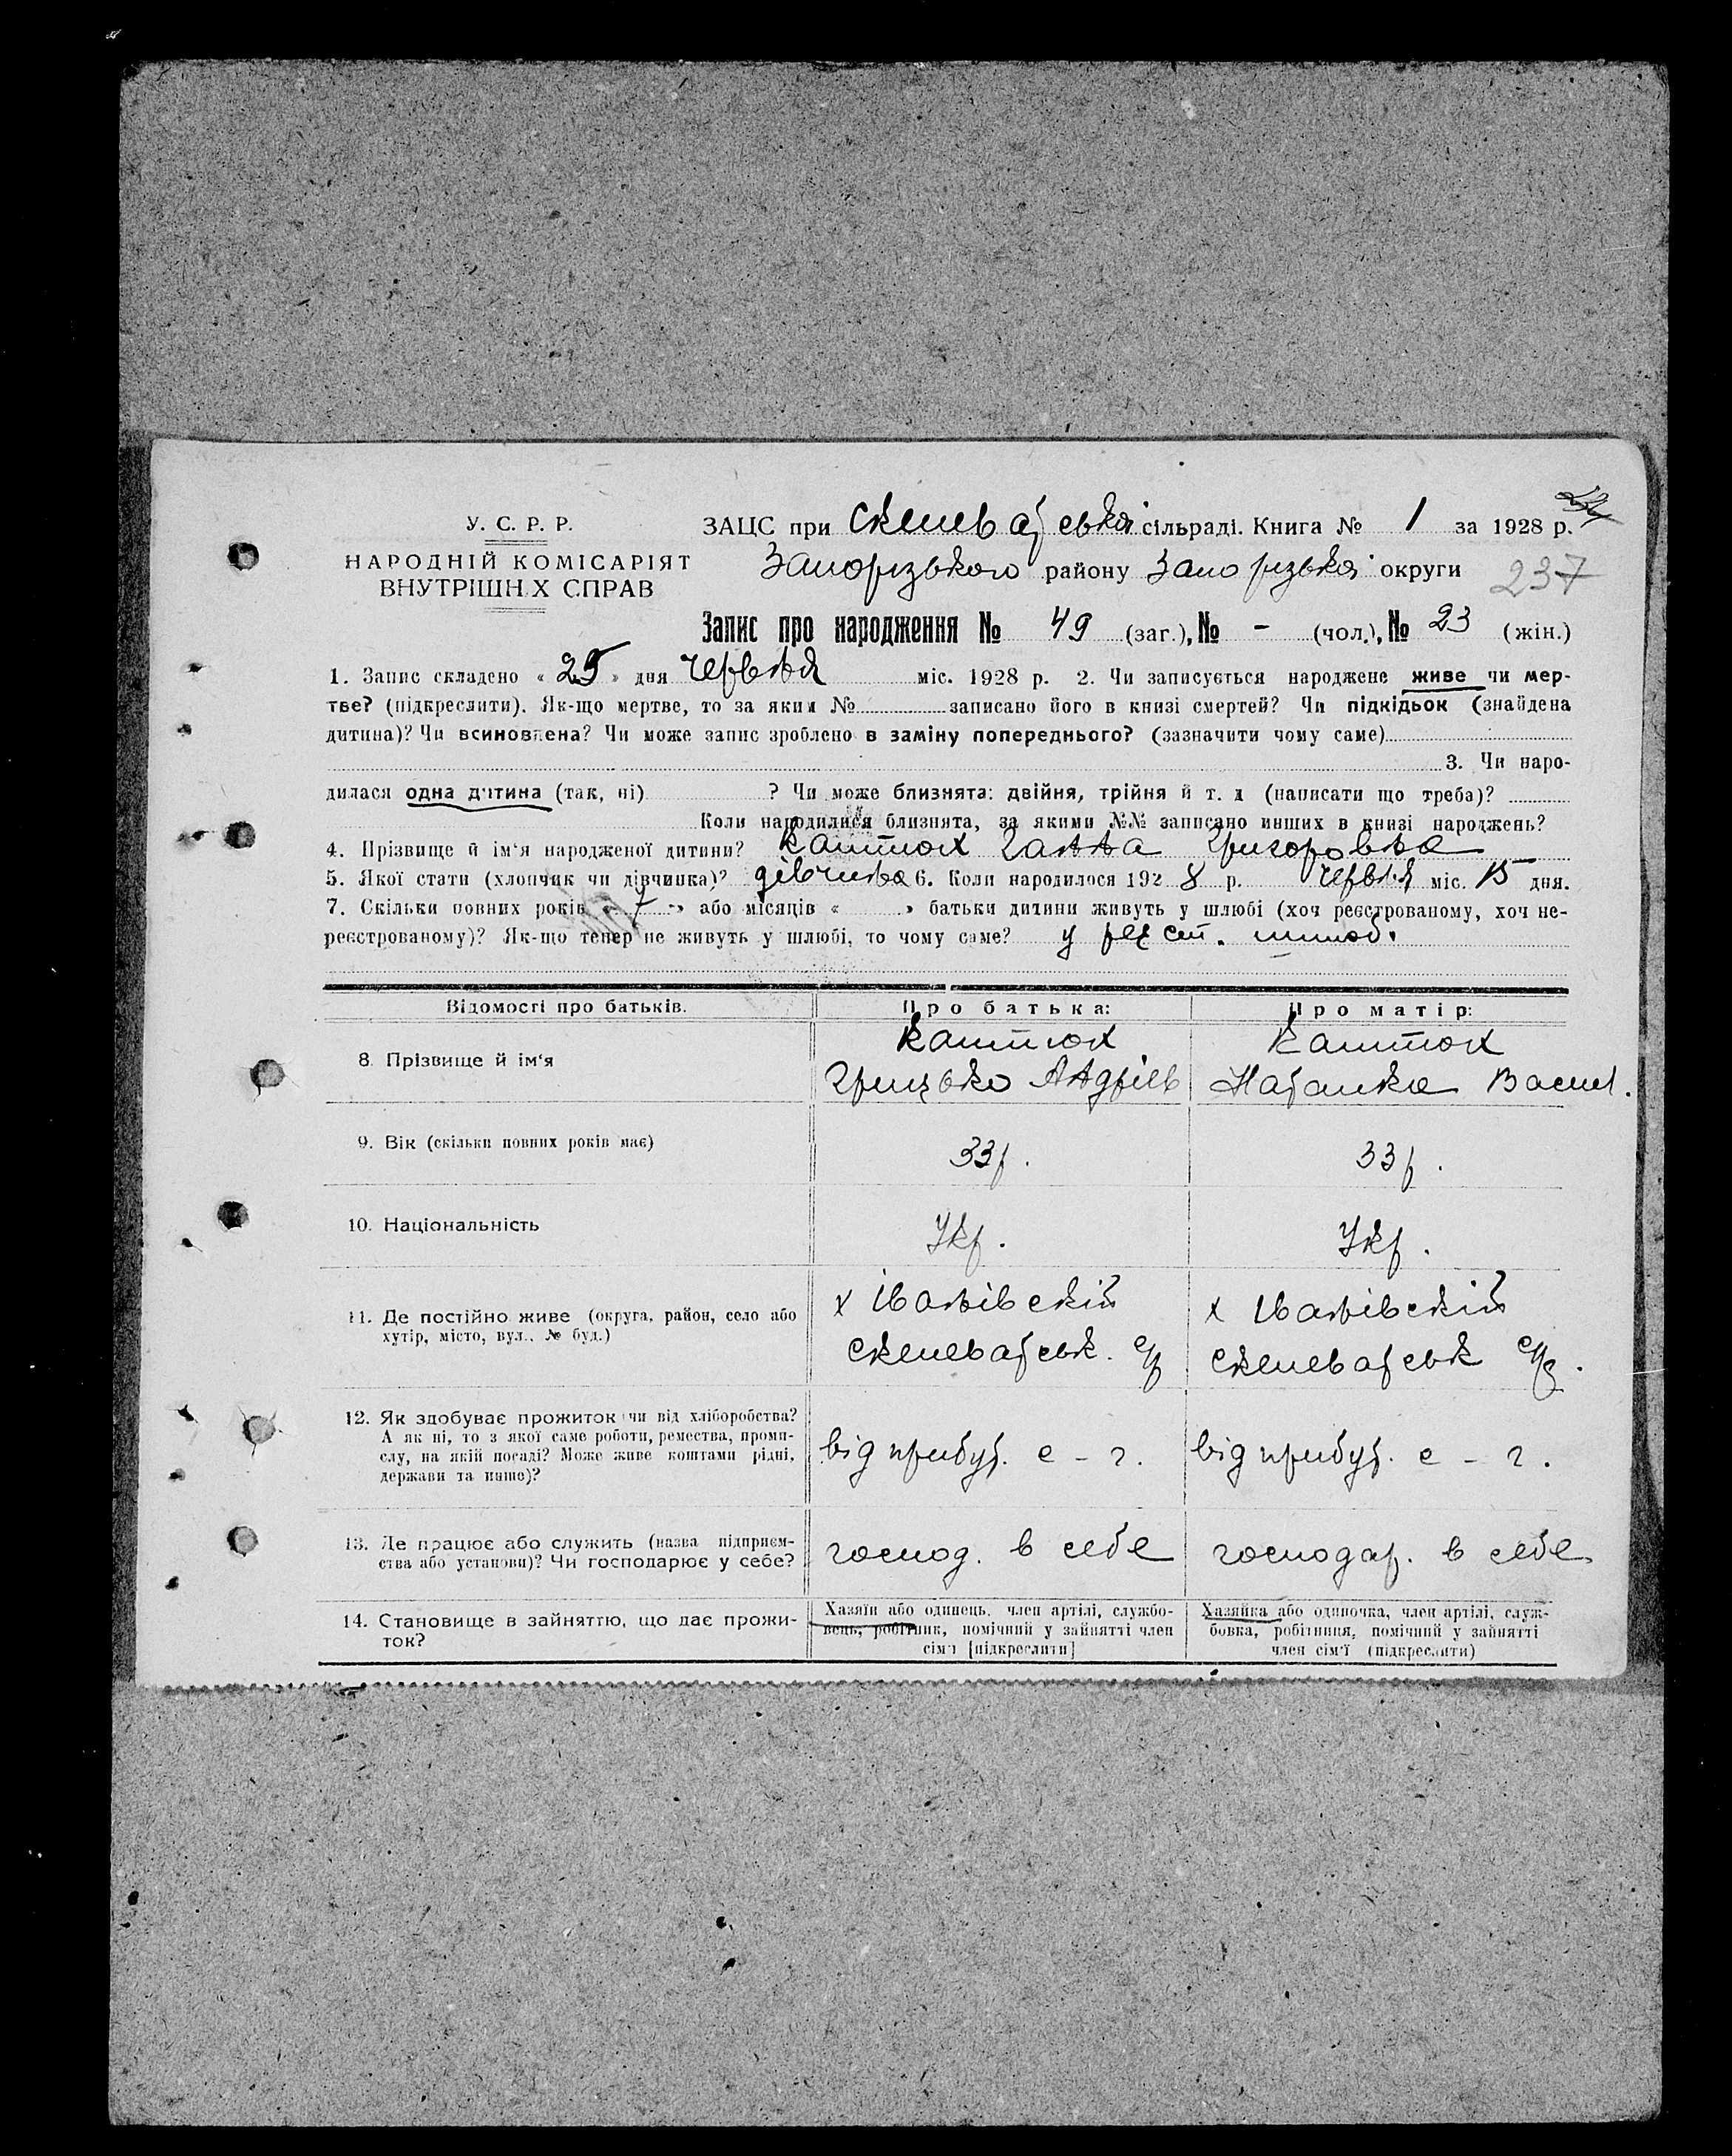 У. С. Р. Р.
НАРОДНІЙ КОМІСАРІЯТ
ВНУТРІШН.Х СПРАВ
ЗАЦС при Скелеватської сільраді. Книга № 1 за 1928 р.
Запорізького району Запорізької округи 237
Запис про народження № 49 (заг.), № - (чол.), № 23 (жін.)
1. Запис складено « 25 » дня червня міс. 1928 р. 2. Чи записується народжене живе чи мер-
тве? (підкреслити). Як-що мертве, то за яким № записано його в книзі смертей? Чи підкідьок (знайдена
дитина)? Чи всиновлена? Чи може запис зроблено в заміну попереднього? (зазначити чому саме)
3. Чи наро-
дилася одна дитина (так, ні) ? Чи може близнята: двійня, трійня й т. д (написати що треба)?
Коли народилися близнята, за якими №№ записано инших в книзі народжень?
4. Прізвище й ім'я народженої дитини? Каштюх Ганна Григоровна
5. Якої статі (хлопчик чи дівчинка)? дівчинка 6. Коли народилося 192 8 р. червня міс. 15 дня.
7. Скільки повних років « 7 » або місяців « » батьки дитини живуть у шлюбі (хоч реєстрованому, хоч не-
реєстрованому)? Як-що тепер не живуть у шлюбі, то чому саме? у шлюб.
Відомості про батьків. Про батька: Про матір:
8. Прізвище й ім'я
Каштюх
Грицько Андрієв
Каштюх
Наталка Васил.
9. Вік (скільки повних років має) 33 р. 33 р.
10. Національність Укр. Укр.
11. Де постійно живе (округа, район, село або
хутір, місто, вул., № буд.)
х Іванівский
Скелеватськ. с/р
х Іванівский
Скелеватськ с/р.
12. Як здобуває прожиток чи від хліборобства?
А як ні, то з якої саме роботи, ремества, проми-
слу, на якій посаді? Може живе коштами рідні,
держави та инше)?
від прибут. с - г.
від прибут. с - г.
13. Де працює або служить (назва підприєм-
ства або установи)? Чи господарює у себе?
господ. в себе
господар. в себе
14. Становище в зайняттю, що дає прожи-
ток?
Хазяїн або одинець, член артілі, службо-
вець, робітник, помічний у зайнятті член
сім'ї [підкреслити]
Хазяйка або одиночка, член артілі, служ-
бовка, робітниця, помічний у зайнятті
член сім'ї (підкреслити)